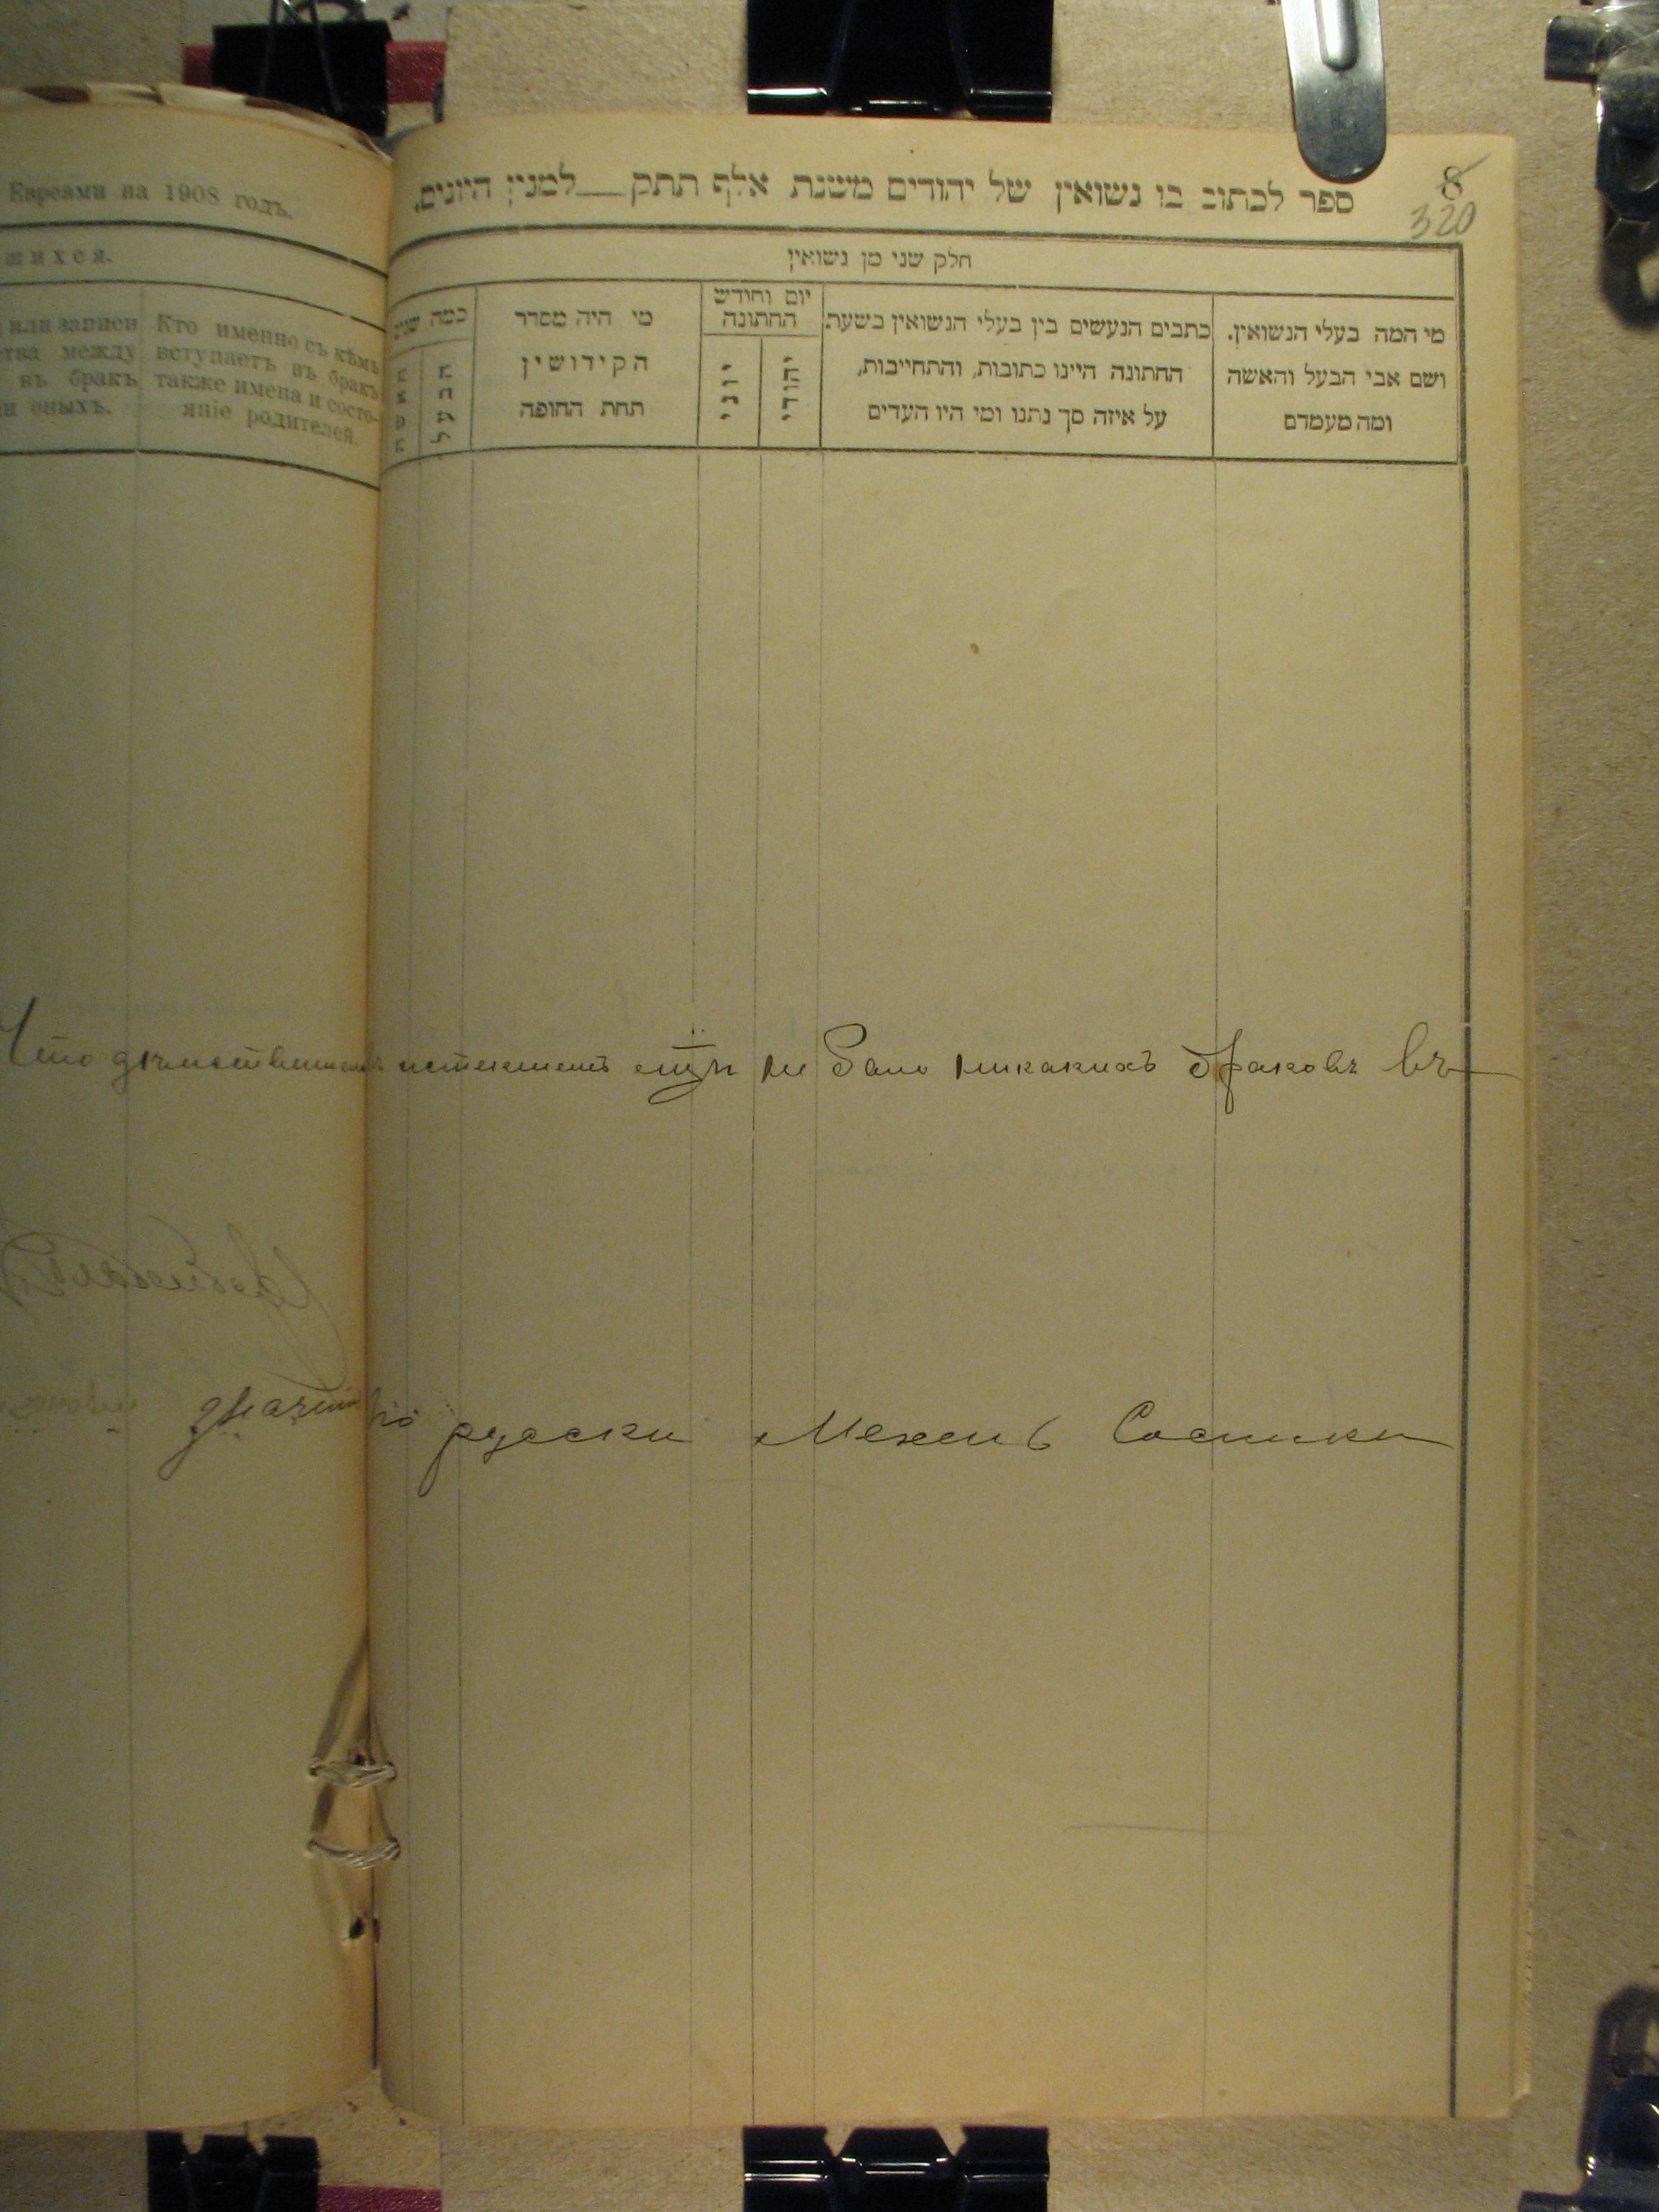 Евреями на 1908 годъ.
шихся.
или записи
между
въ бракъ
оныхъ.
Кто именно съ кѣмъ
вступаетъ въ бракъ
также имена и состо-
яніе родителей.
8
320
ספר לכתוב בו נשואין של יהודים משנת אלף תתק__למנין היונים.
חלק שני מן נשואין
מי המה בעלי הנשואין.
ושם אבי הבעל והאשה
ומה מעמדם
כתבים הנעשים בין בעלי הנשואין בשעת
החתונה היינו כתובות, והתחייבות,
על איזה סך נתנו ומי היו העדים
יום וחודש
החתונה
יהודי
יוני
מי היה מסדר
הקידושין
תחת החופה
כמה שנים
הבעל
האשה
Что не было никакихъ браковъ въ
русски